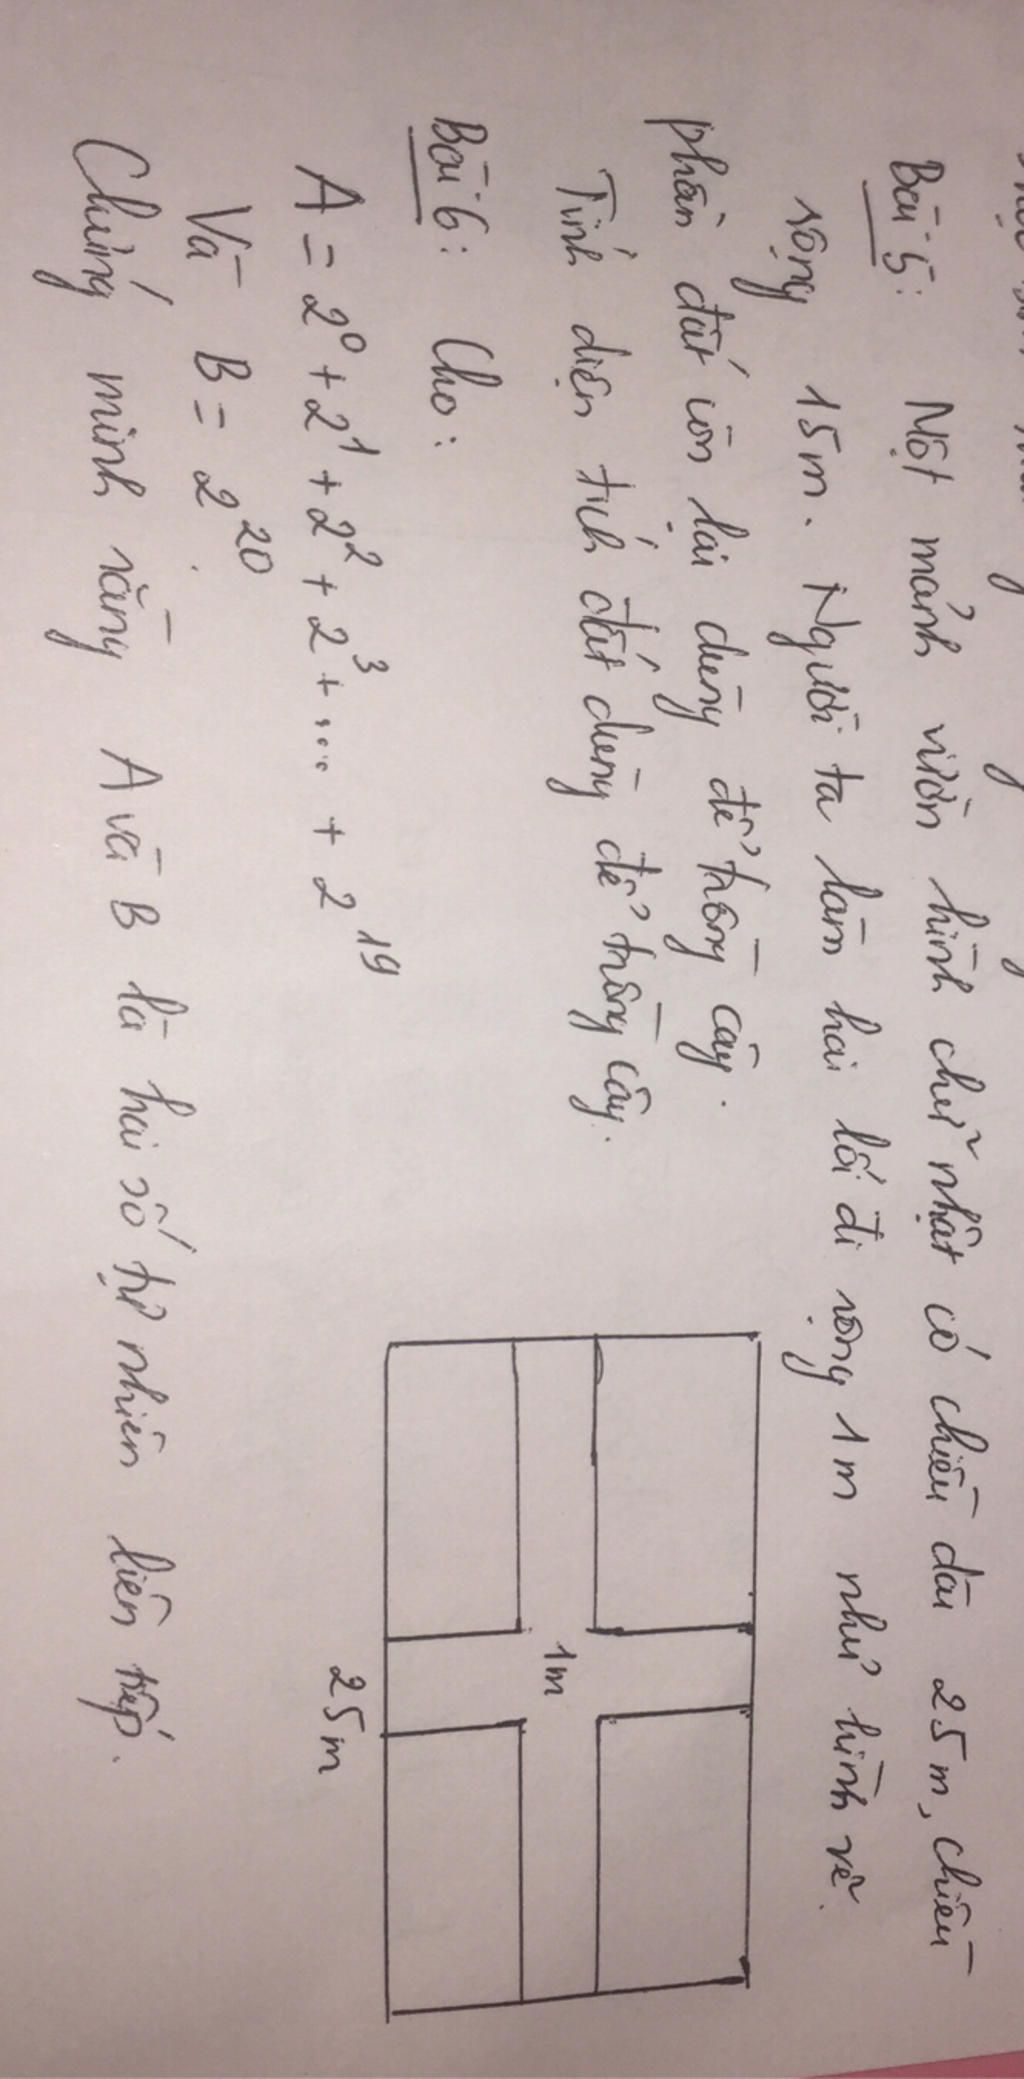 Bài 5: Một mảnh vườn hình chữ nhật có chiều dài 25m, chiều
rộng 15m. Người ta làm hai lối đi rộng 1m như hình vẽ.
phần đất còn lại dùng để trồng cây.
Tính diện tích đất dùng để trồng cây.
1m
25m
Bài 6: Cho:
A = 2⁰ + 2¹ + 2² + 2³ + ... + 2¹⁹
Và B = 2²⁰.
Chứng minh rằng A và B là hai số tự nhiên liên tiếp.